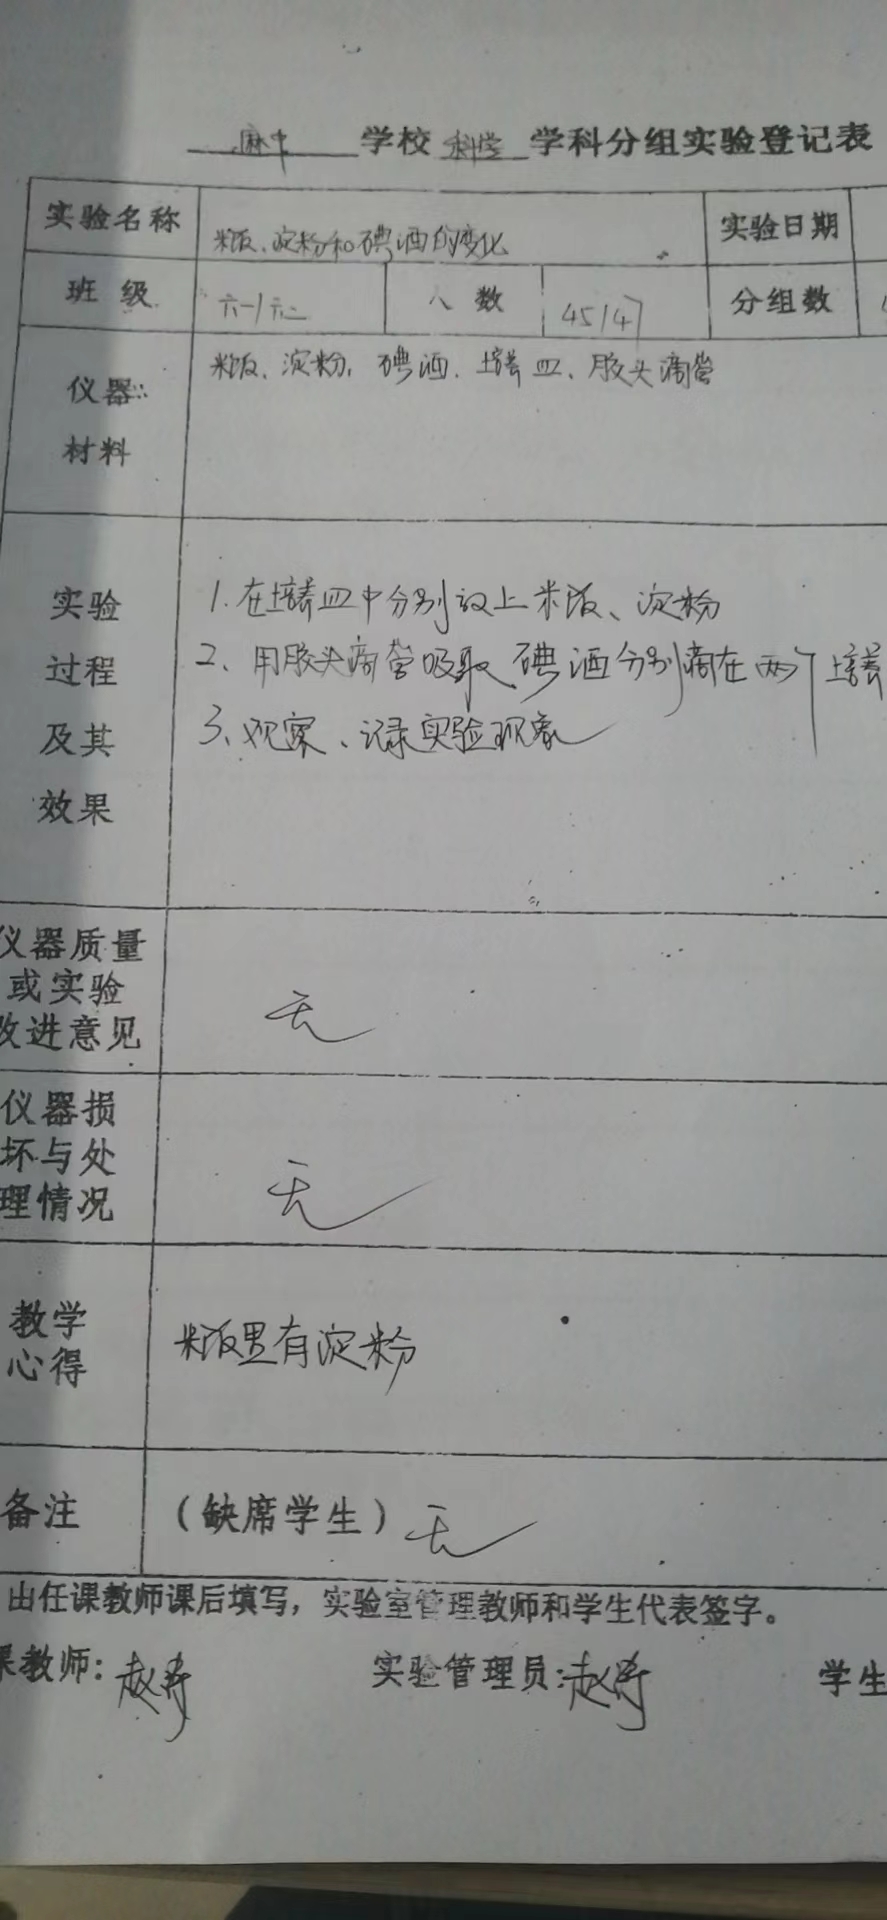 麻中 学校 科学 学科分组实验登记表
实验名称 米饭、淀粉和碘酒的变化 实验日期
班级 六一/六二 人数 45/47 分组数
仪器 材料 米饭、淀粉、碘酒、培养皿、胶头滴管
实验过程及其效果
1. 在培养皿中分别放上米饭、淀粉
2、用胶头滴管吸取碘酒分别滴在两个培养
3、观察、记录实验现象
仪器质量
或实验
改进意见 无
仪器损
坏与处
理情况 无
教学
心得 米饭里有淀粉
备注 (缺席学生) 无
由任课教师课后填写，实验室管理教师和学生代表签字。
课教师: 赵 实验管理员: 赵 学生